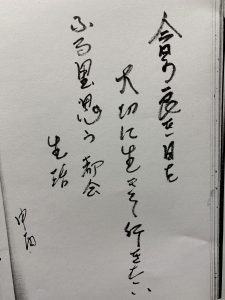 今日の一日を
大切に生きて行きたい
ふる里思う都会
生活